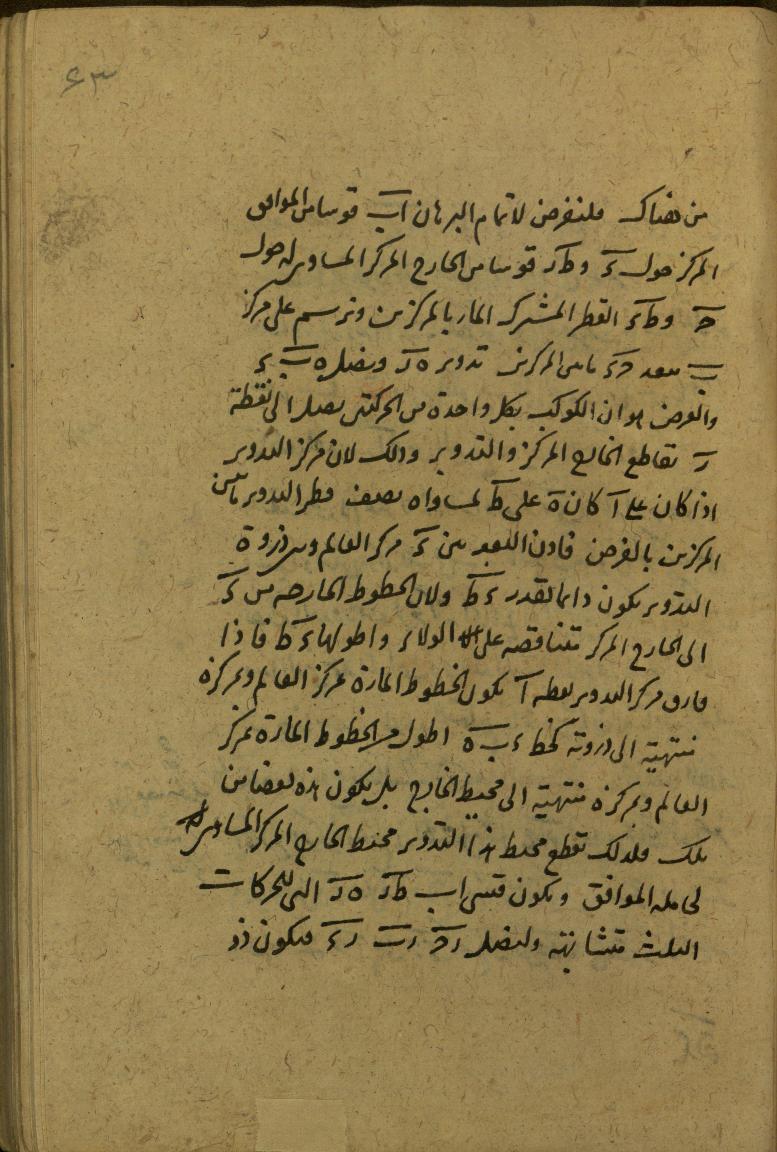 ٤٣
من هناك فلنفرض لاتمام البرهان اب قوسا من الموافق
المركز حول ء وط ر قوسا من الخارج المركز المساوى له حول
ح وط ء القطر المشترك المار بالمركزين ونرسم على مركز
ب ببعد ح ء مابين المركزين تدوير ه ر ونصل ه ب ء
والغرض هو ان الكوكب بكل واحدة من الحركتين يصل الى نقطة
ر تقاطع الخارج المركز والتدوير وذلك لان مركز التدوير
اذا كان على آ كان ة على ط لمساواه نصف قطر التدوير مابين
المركزين بالفرض فاذن البعد بين ء مركز العالم وبين ذروة
التدوير يكون دائما بقدر ء ط ولان الخطوط الخارجه من ء
الى الخارج المركز متناقصه على الولاء واطولها ء ط فاذا
فارق مركز التدوير نقطه آ يكون الخطوط المارة بمركز العالم وبمركزه
منتهية الى ذروته كخط ء ب ة اطول من الخطوط المارة بمركز
العالم وبمركزه منتهية الى محيط الخارج بل يكون هذه بعضا من
تلك فلذلك تقطع محيط هذا التدوير محيط الخارج المركز المساوى
لحامله الموافق ويكون قسى اب ط ر ه ر التى للحركات
الثلث متشابهة ولنصل ر ح ر ب ر ء فيكون ذو